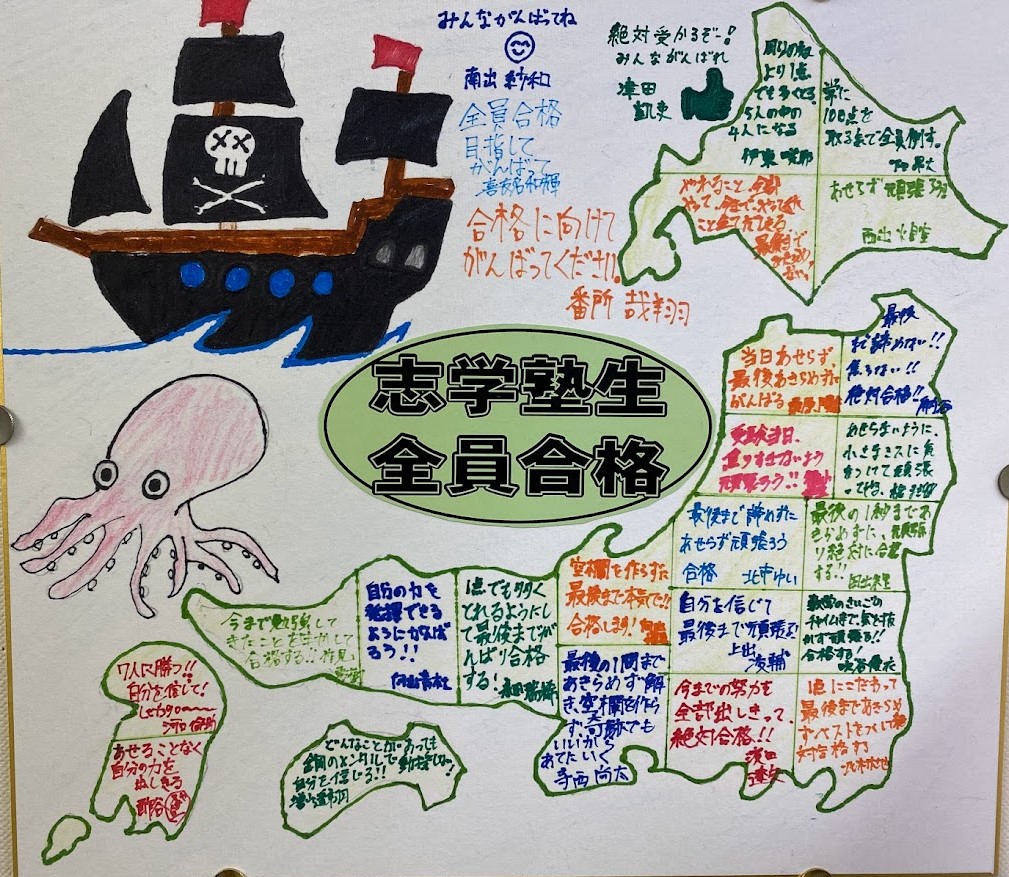 みんながんばってね
南出 紗和
全員合格
目指して
がんばって
喜友名和輝
合格に向けて
がんばってください。
番所 哉翔羽
絶対受かるぞー!
みんながんばれ
津田
凱吏
周りの奴
より1点
でも多くとる。
5人の中の
4人になる
伊東
常に
100点を
取る気で全員倒す。
やれること全部
やって、
あせらず頑張ろう
西出
志学塾生
全員合格
当日あせらず、
最後あきらめずに
がんばる
最後
まで諦めない!!
焦らない!!
絶対合格!!
受験当日、
焦りすぎないよう
頑張ろう!!
あせらないように、
小さなミスに気
をつけて頑張
ってやる。
最後まで諦めずに
あせらず頑張ろう
合格 北中ゆい
最後の1秒まであ
きらめずに、頑張
り絶対に合格
する!!
空欄を作らずに
最後まで本気で!!
合格します!
自分を信じて
最後まで頑張る!
上出
凌輔
気を抜
かず頑張る!!
合格する!
今まで勉強して
きたことを生かして
合格する!!
自分の力を
発揮できる
ようにがんば
ろう!!
1点でも多く
とれるようにし
て最後までが
んばり合格
する!
最後の1問まで
あきらめず解
き、空欄を作ら
ず、
でも
いいから
あてていく
寺西 尚太
今までの努力を
全部出しきって、
絶対合格!!
濱田
1点にこだわって
最後まであきらめ
ずベストをつくして絶
対合格する
7人に勝つ!!
自分を信じて!
河口
あせることなく
自分の力を
出しきる
どんなことがあっても
動揺しない!
自分を信じる!!